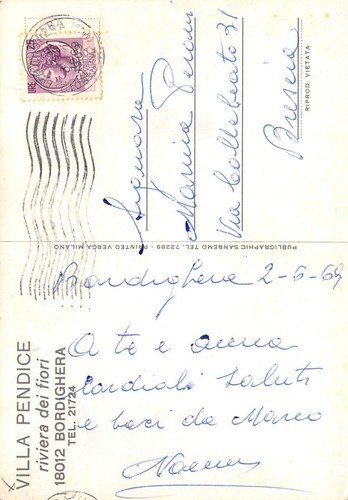 VILLA PENDICE
riviera dei fiori
18012 BORDIGHERA
TEL. 21724
Bordighera 2-6-69
A te e anna
cordiali saluti
e baci da Marco
PUBLIGRAPHIC SANREMO TEL. 72289 - PRINTED VERGA MILANO
Signora
Marina
Via Collebeato 31
Brescia
RIPROD. VIETATA